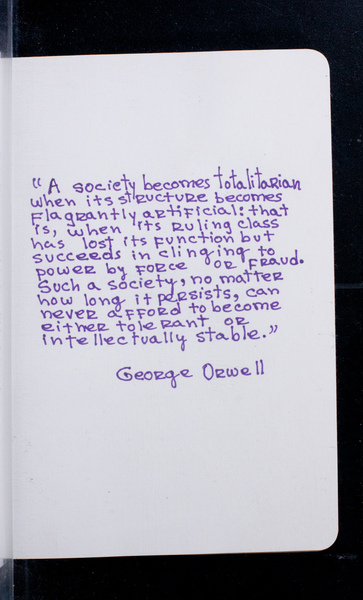 “A society becomes totalitarian
when its structure becomes
flagrantly artificial: that
is, when its ruling class
has lost its function but
succeeds in clinging to
power by force or fraud.
Such a society, no matter
how long it persists, can
never afford to become
either tolerant or
intellectually stable.”
George Orwell